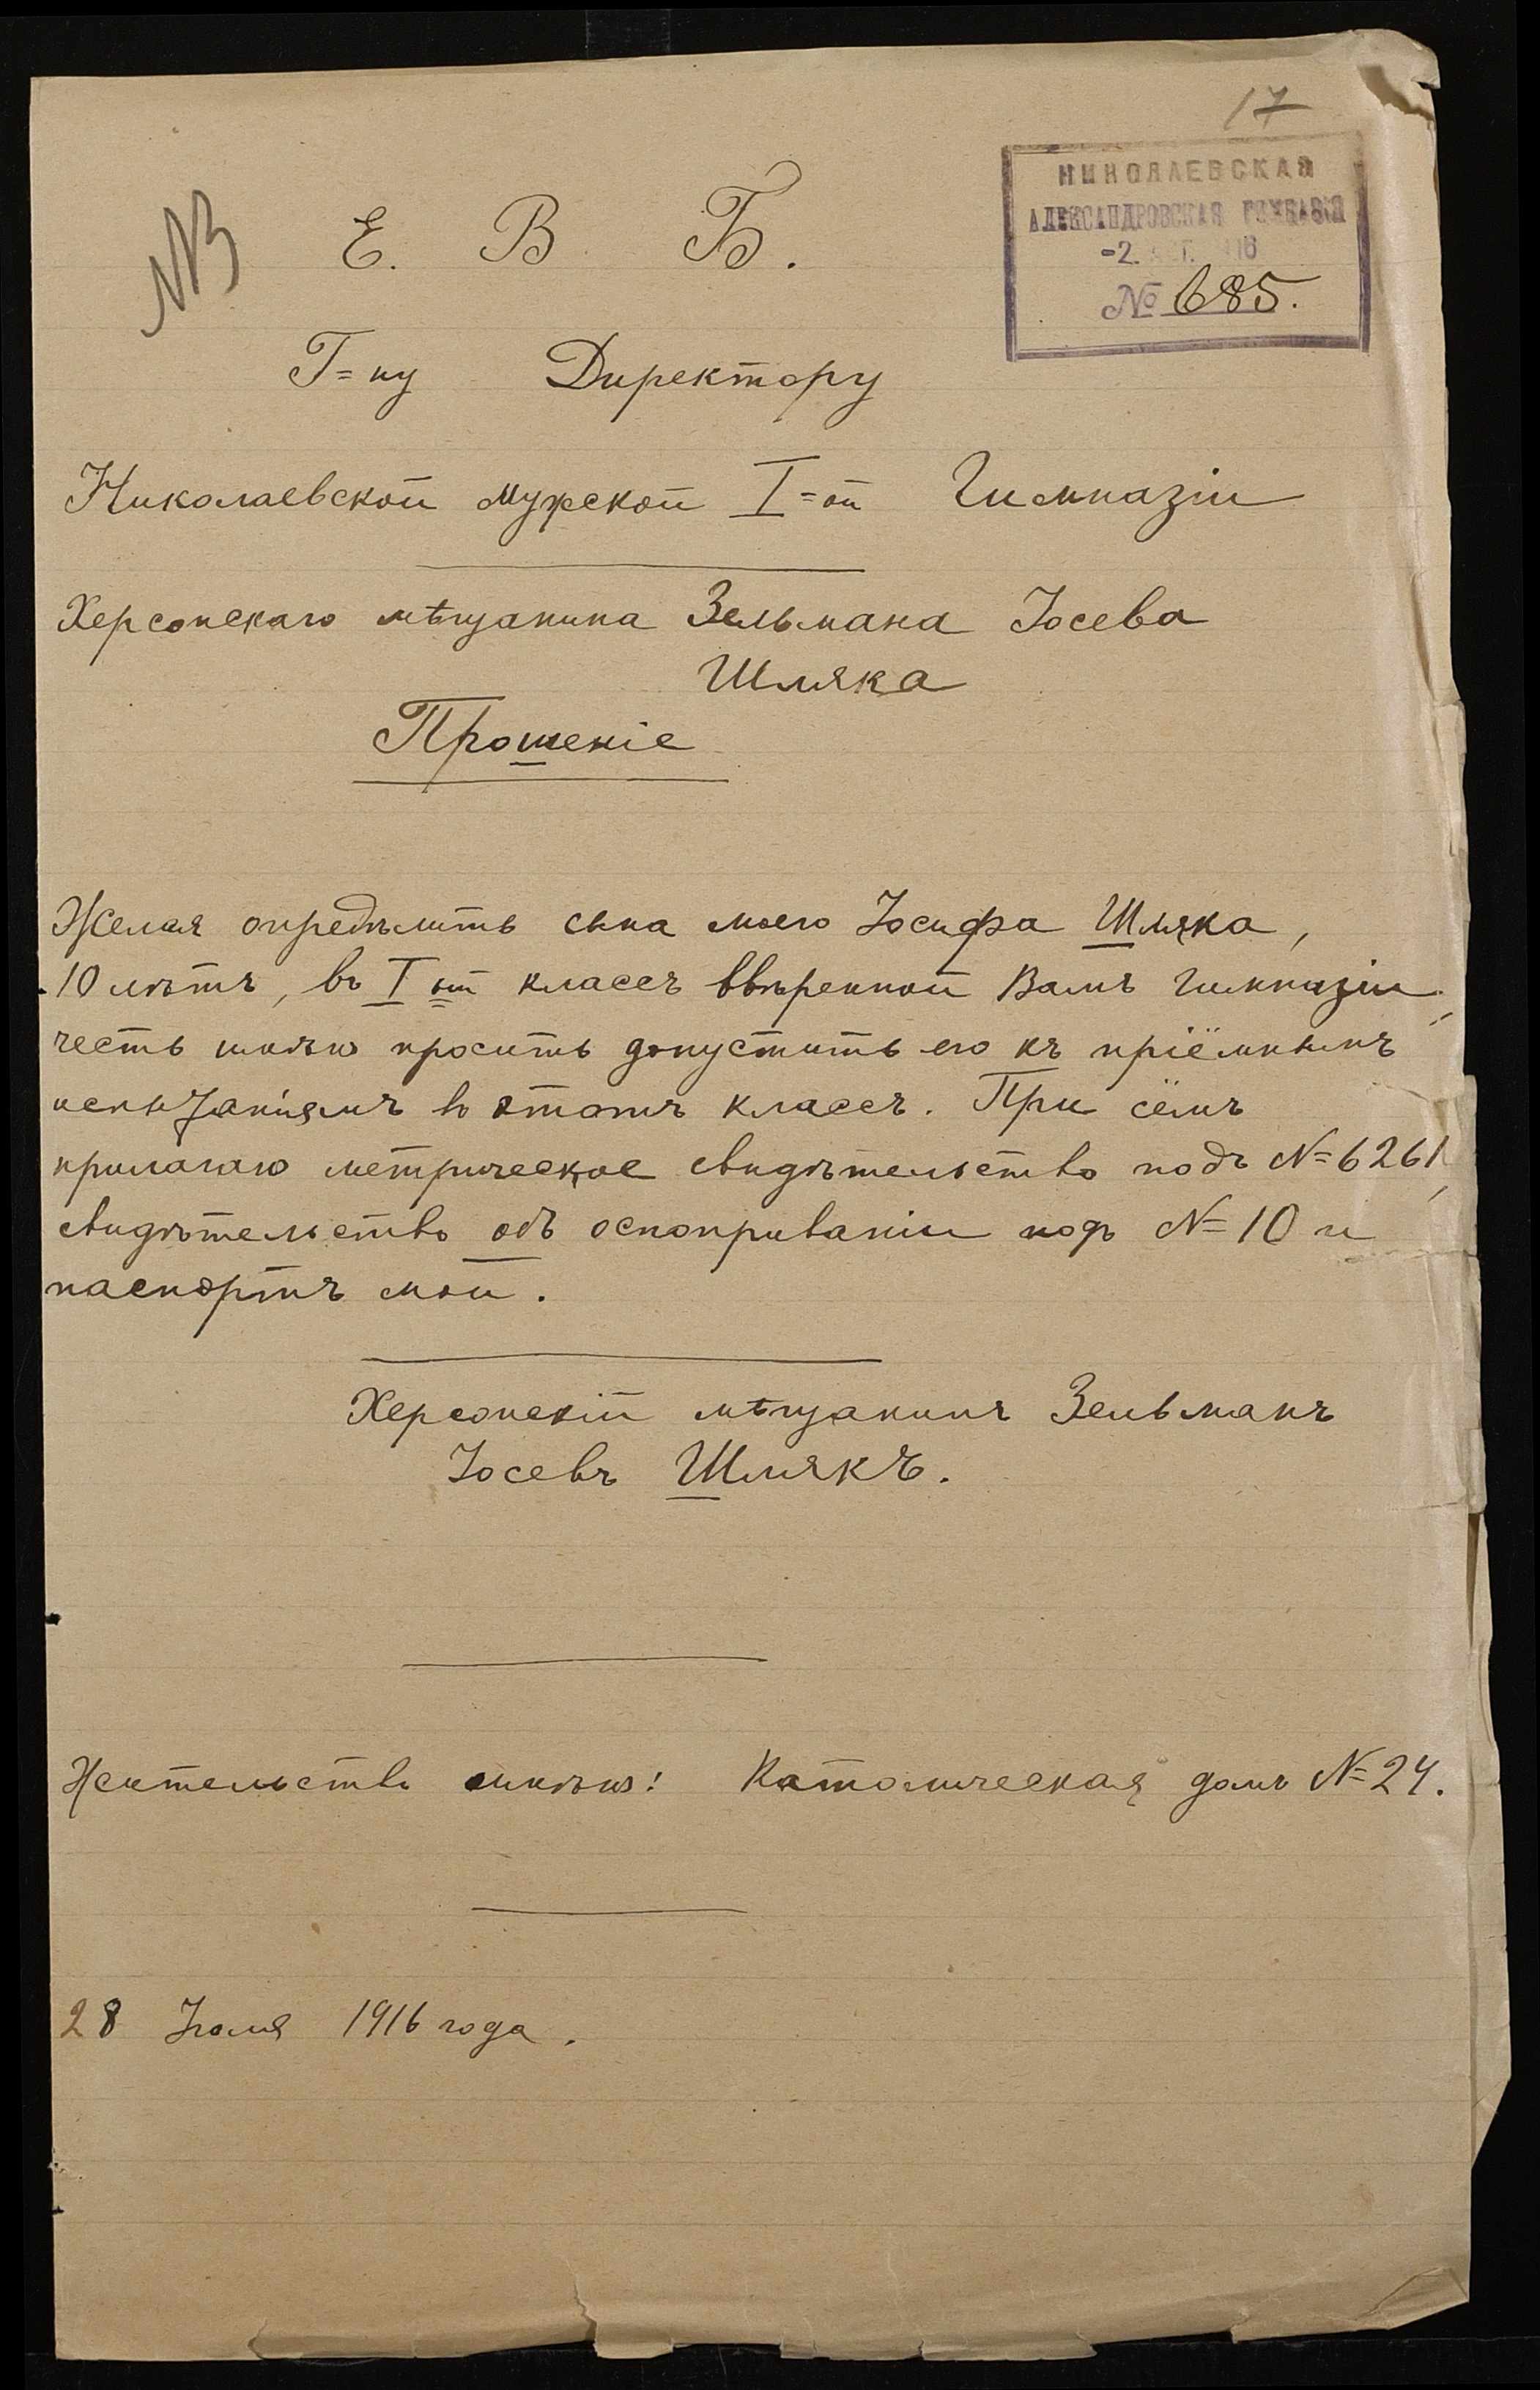 17
НИКОЛАЕВСКАЯ
АЛЕКСАНДРОВСКАЯ ГИМНАЗІЯ
-2. 16
№ 685.
NB
Е. В. Б.
Г=ну Директору
Николаевской мужской I=ой Гимназіи
Херсонскаго мѣщанина Зельмана Іосева
Шляка
Прошеніе
Желая опредѣлить сына моего Іосифа Шляка,
10 лѣтъ, въ I ый классъ ввѣренной Вамъ гимназіи,
честь имѣю просить допустить его къ пріёмнымъ
испытаніямъ в этотъ классъ. При сёмъ
прилагаю метрическое свидѣтельство подъ №=6261,
свидѣтельство объ оспопривaніи подъ №=10 и
паспортъ мой.
Херсонскій мѣщанинъ Зельманъ
Іосевъ Шлякъ.
Жительство имѣю: Католическая домъ №=24.
28 Іюля 1916 года.